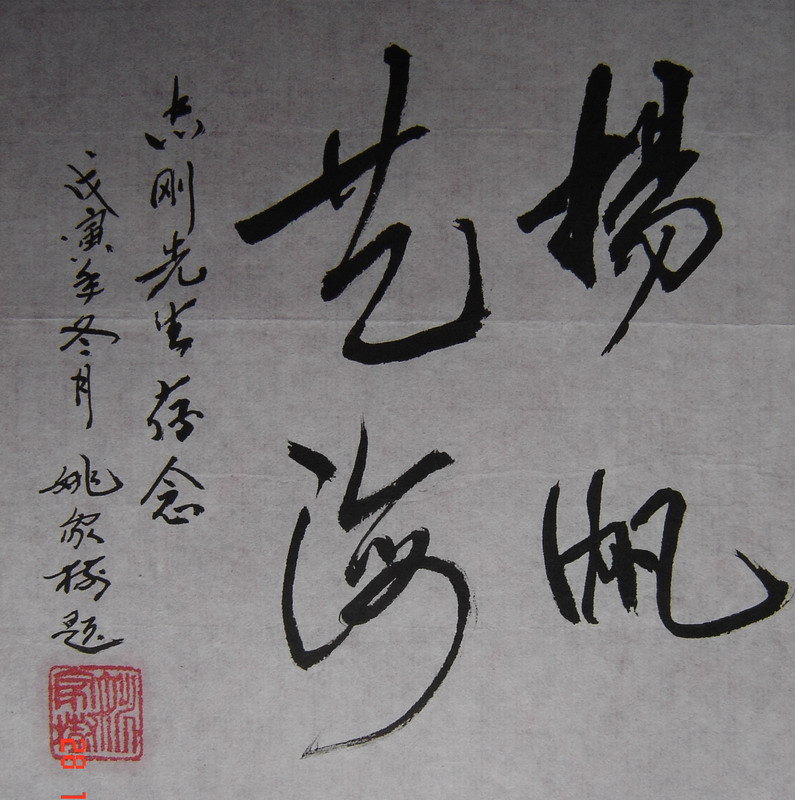 揚帆
艺海
志刚先生存念
戊寅年冬月 姚家栋题
28 1